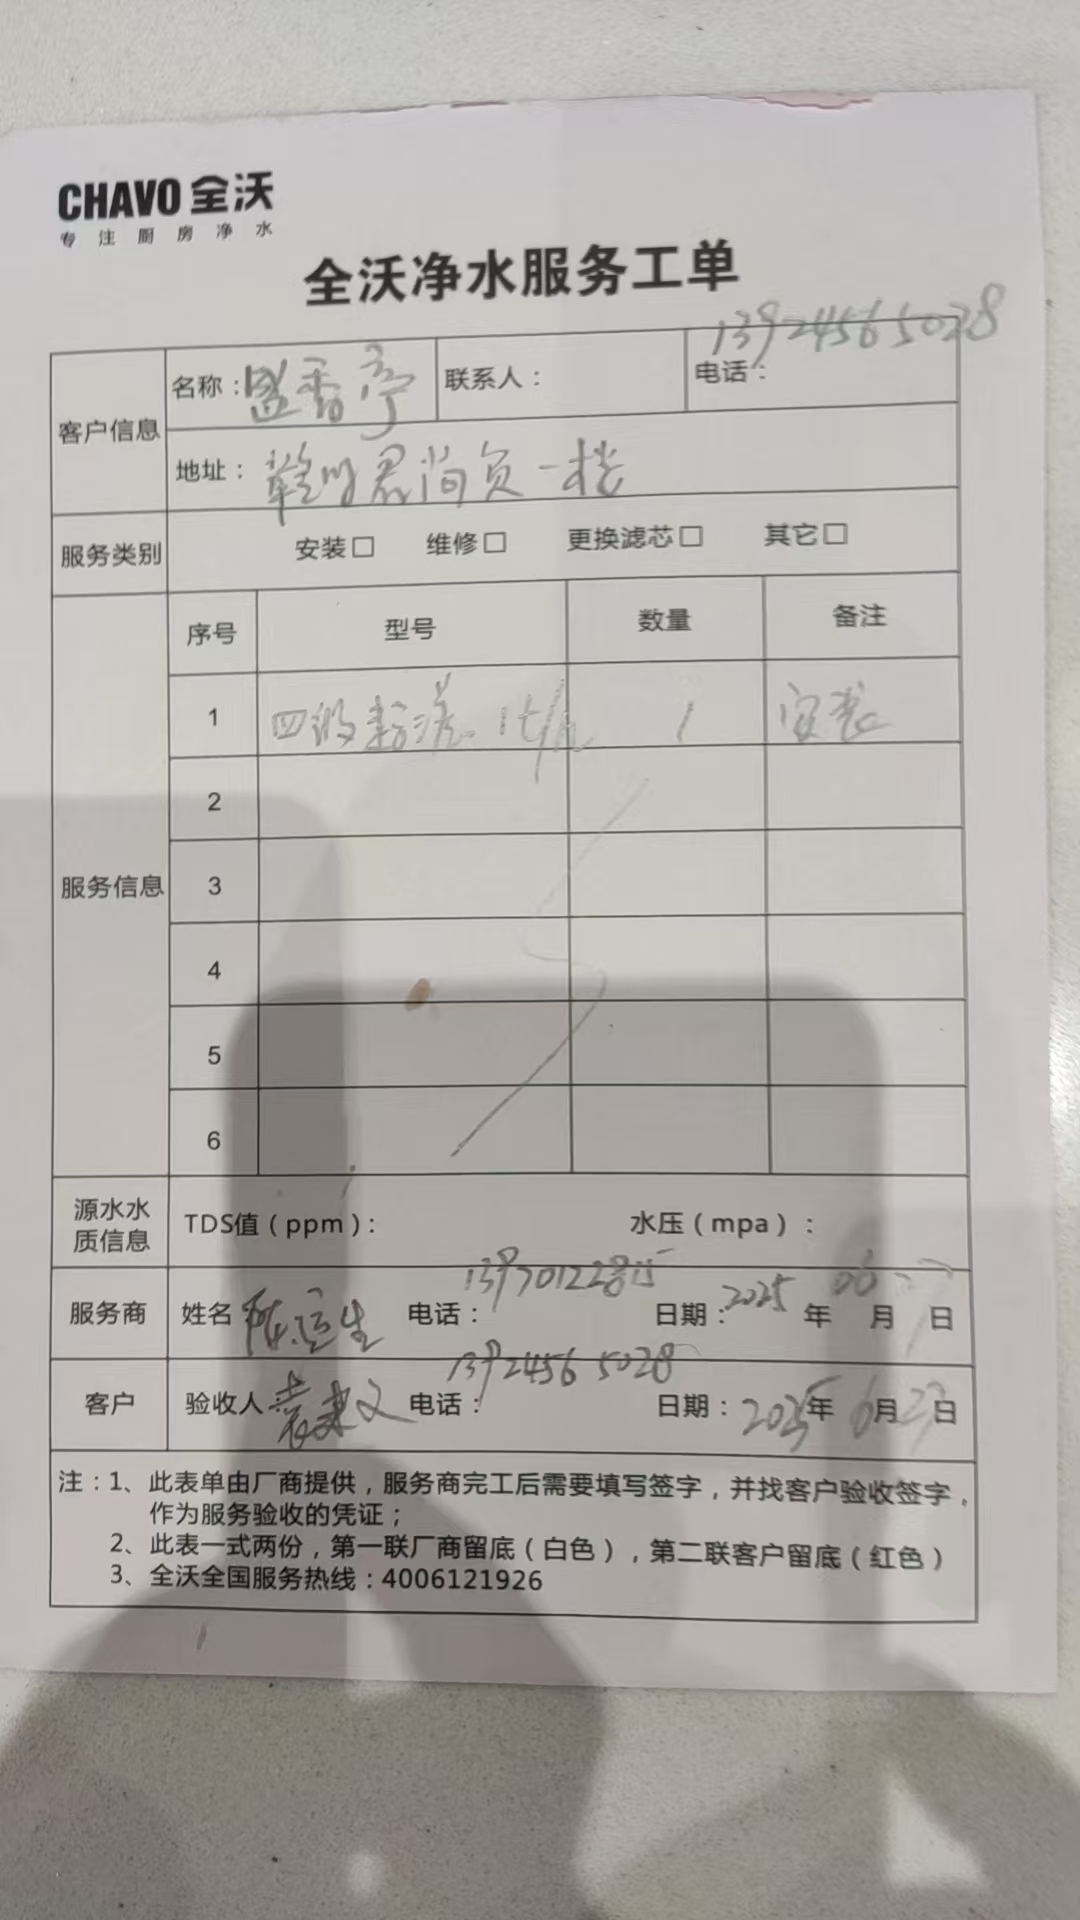 CHAVO 全沃
专注厨房净水
全沃净水服务工单
客户信息
名称：盛香亭
联系人：
电话：13924565028
地址：赣州君尚负一楼
服务类别
安装□ 维修□ 更换滤芯□ 其它□
服务信息
序号 型号 数量 备注
1 四级 1 安装
2
3
4
5
6
源水水质信息
TDS值（ppm）： 水压（mpa）：
服务商 姓名 电话： 日期：2025年06月 日
客户 验收人 电话：13924565028 日期：2025年6月 日
注：1、此表单由厂商提供，服务商完工后需要填写签字，并找客户验收签字，
作为服务验收的凭证；
2、此表一式两份，第一联厂商留底（白色），第二联客户留底（红色）
3、全沃全国服务热线：4006121926